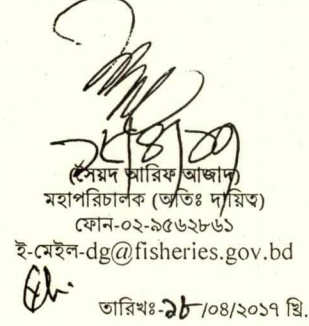 (সৈয়দ আরিফ আজাদ)
মহাপরিচালক (অতিঃ দায়িত্ব)
ফোন-০২-৯৫৬২৮৬১
ই-মেইল-dg@fisheries.gov.bd
তারিখঃ-১৮/০৪/২০১৭ খ্রি.